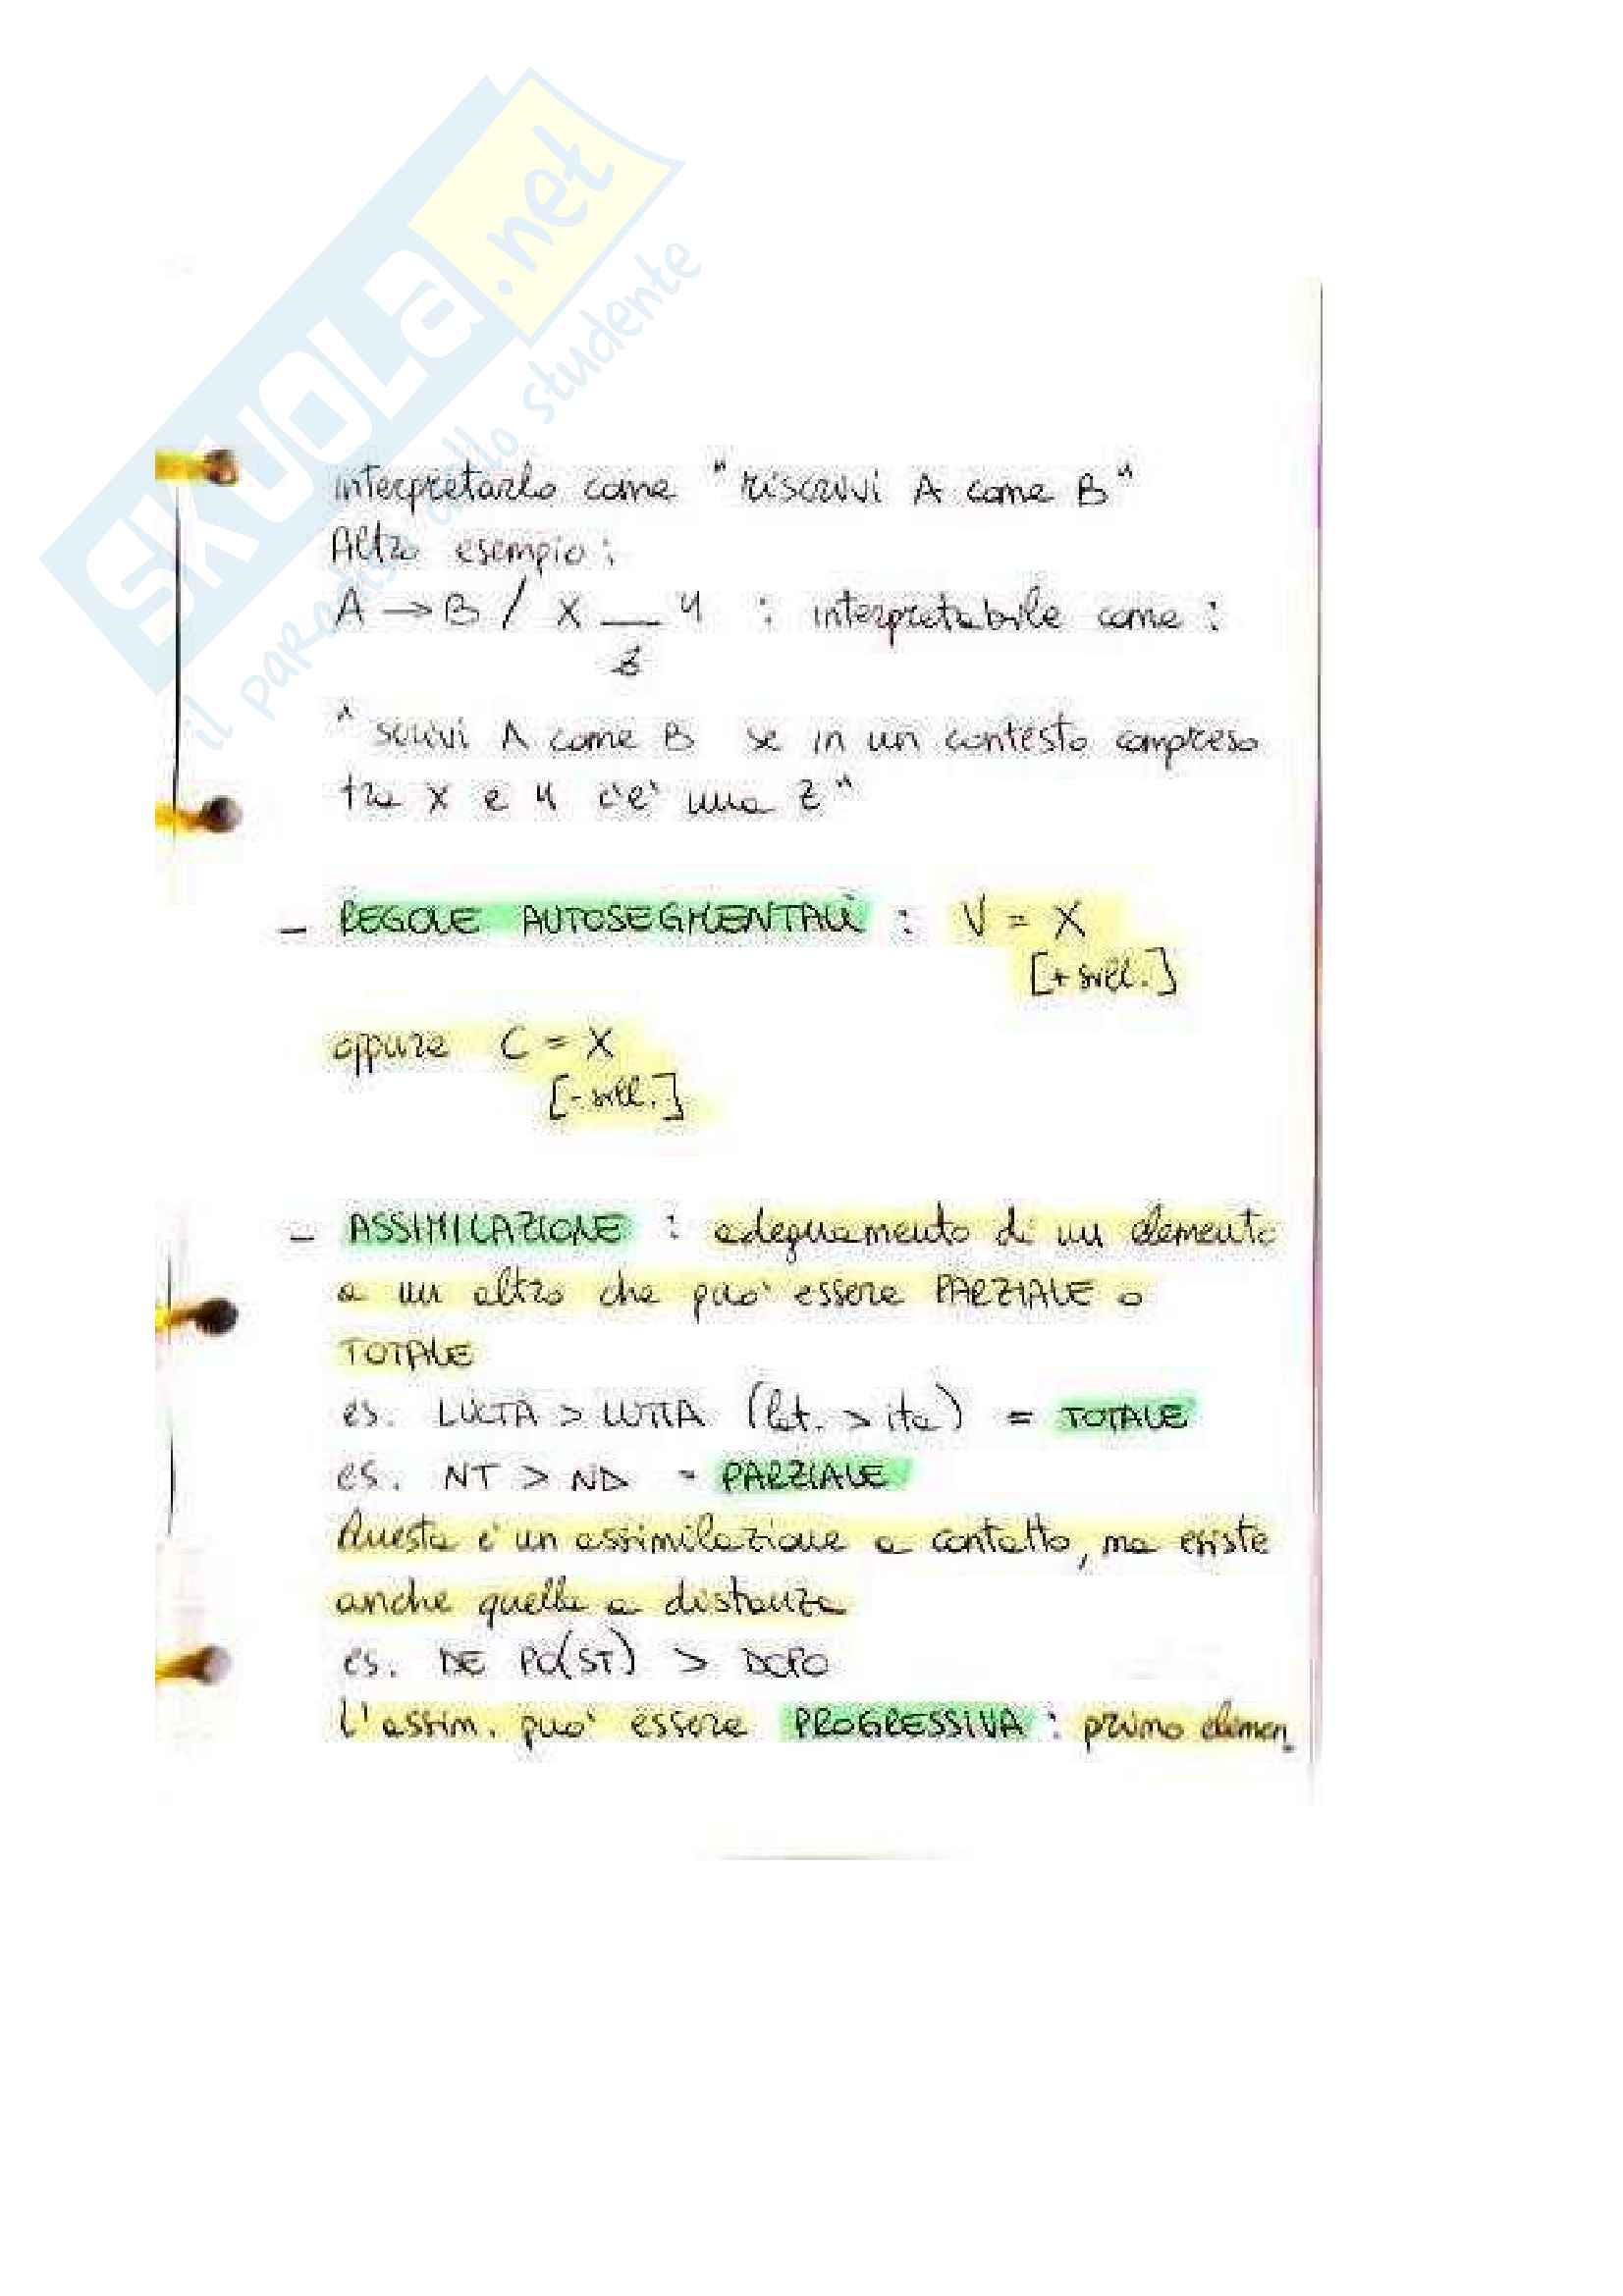 SKUOLA.net
il paradiso dello studente
interpretarlo come "riscrivi A come B"
Altro esempio:
A → B / X __ Y : interpretabile come:
Z
"scrivi A come B se in un contesto compreso
tra X e Y c'e' una Z"
- REGOLE AUTOSEGMENTALI : V = X
[+ sill.]
oppure C = X
[- sill.]
- ASSIMILAZIONE : adeguamento di un elemento
a un altro che puo' essere PARZIALE o
TOTALE
es. LUCTA > LOTTA (lat. > ita) = TOTALE
es. NT > ND = PARZIALE
Questa e' un assimilazione a contatto, ma esiste
anche quella a distanza
es. DE PO(ST) > DOPO
L'assim. puo' essere PROGRESSIVA : primo elemen.